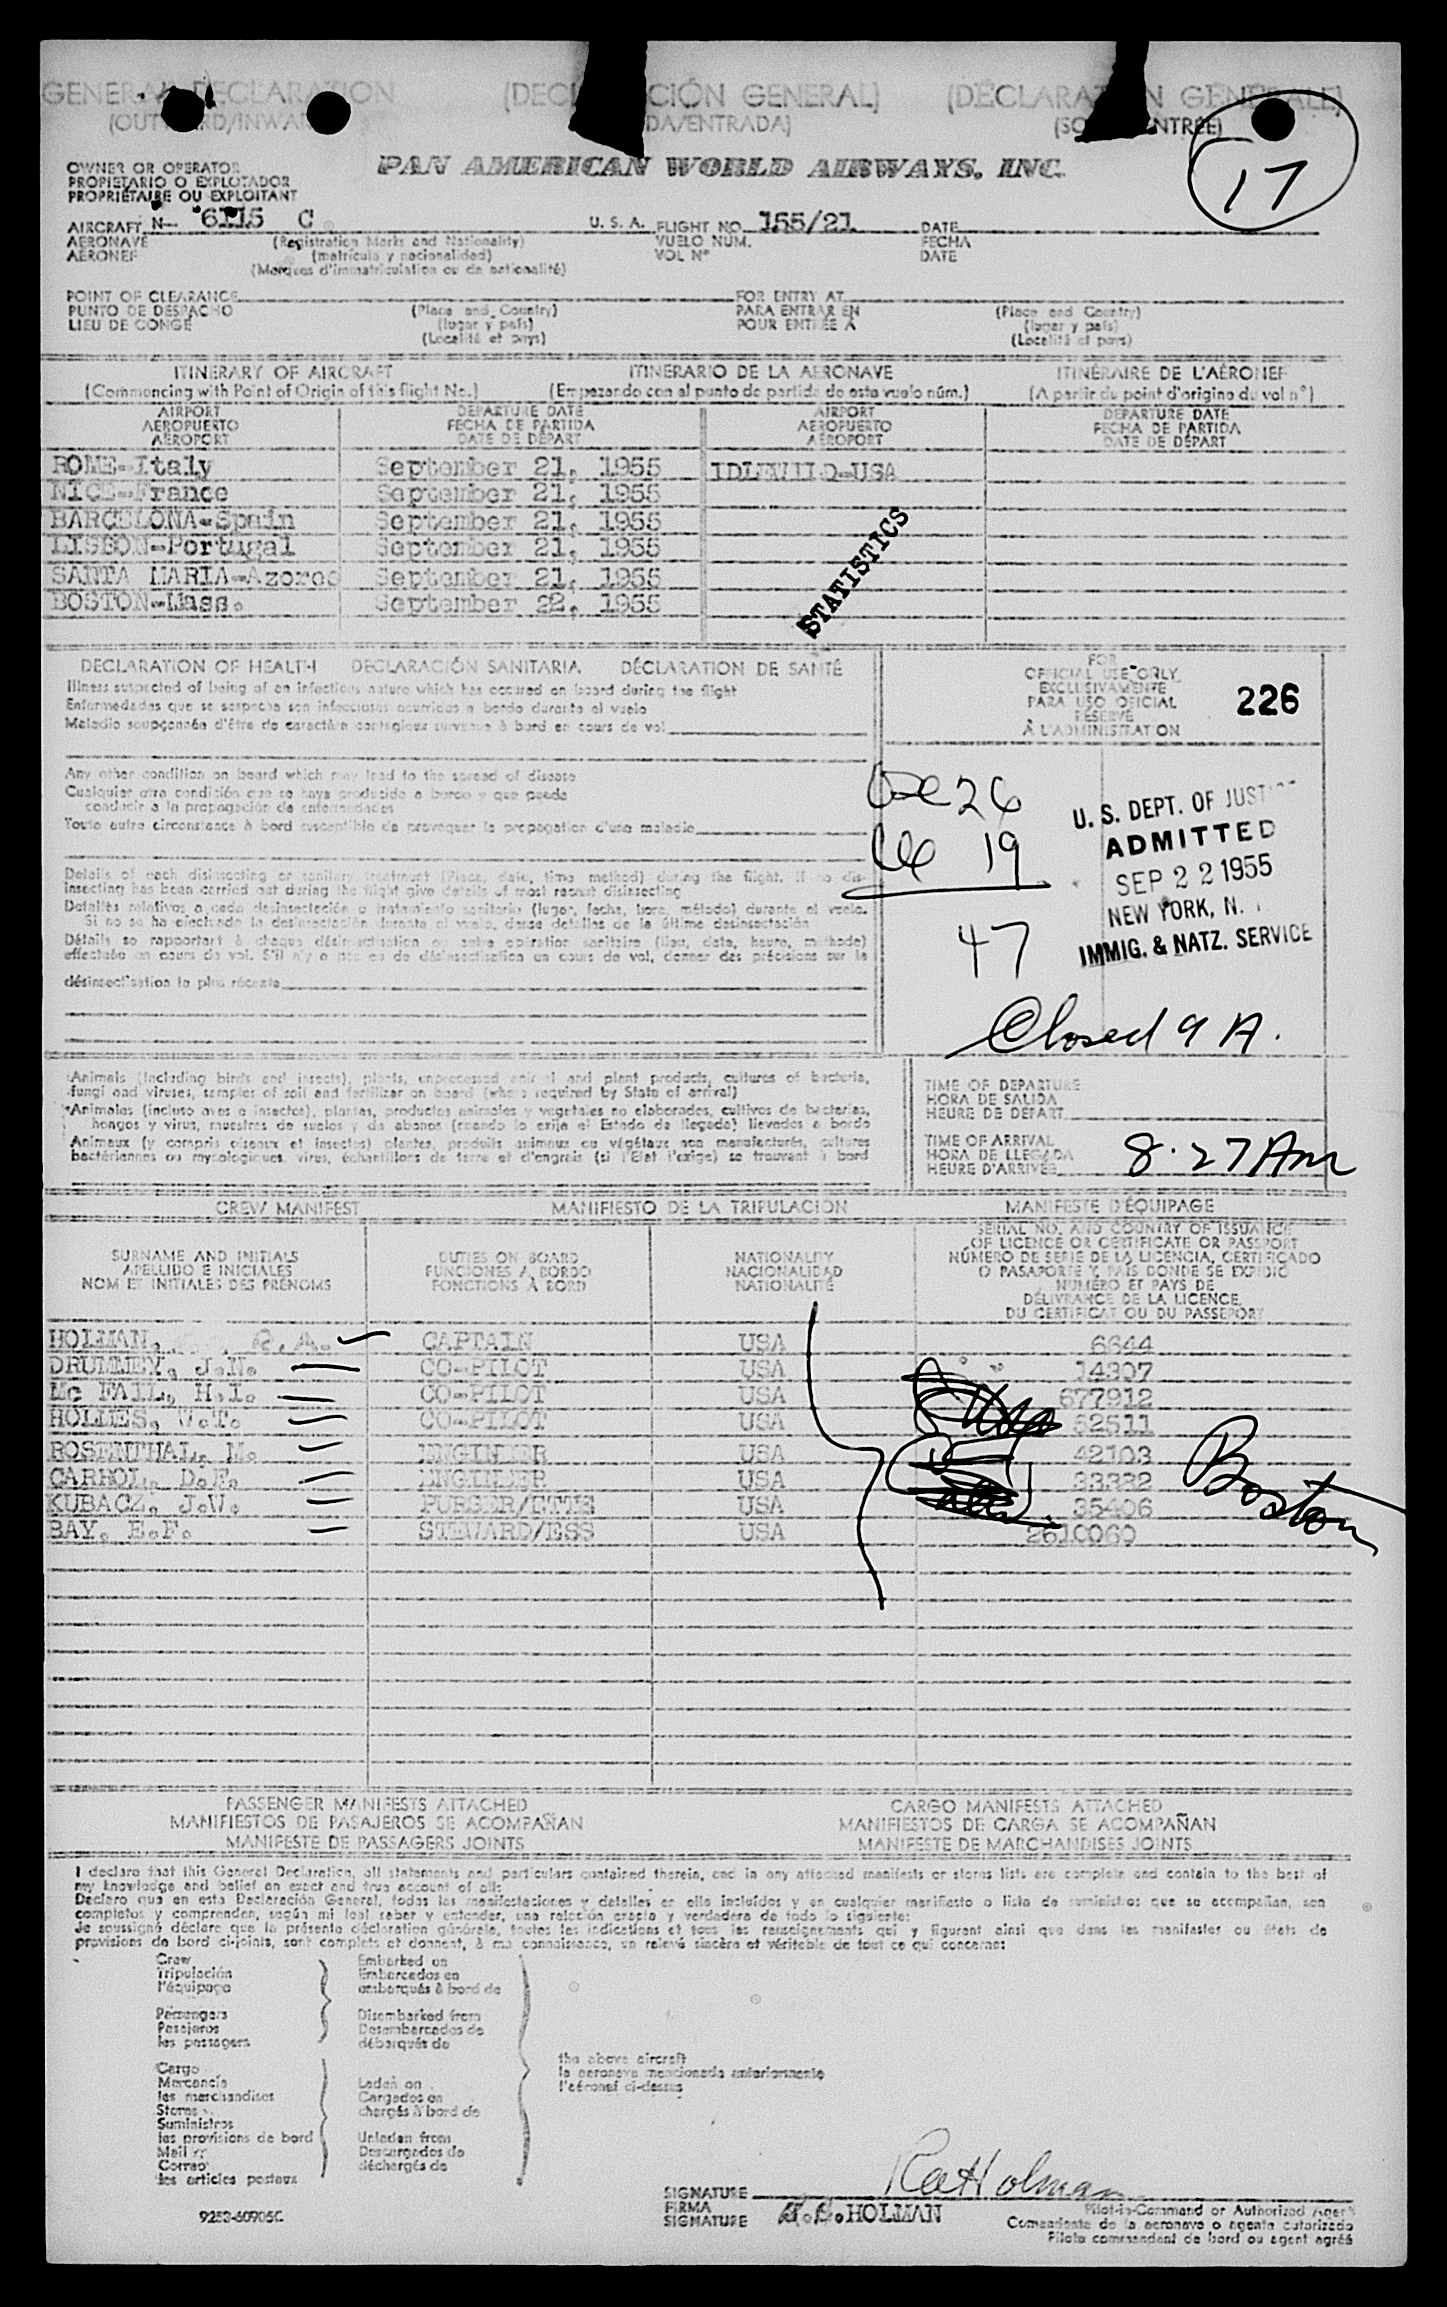 GENERAL DECLARATION (DECLARACIÓN GENERAL) (DÉCLARATION GÉNÉRALE)
(OUTWARD/INWARD) DA/ENTRADA) NTRÉE)
17
OWNER OR OPERATOR
PROPIETARIO O EXPLOTADOR
PROPRIÉTAIRE OU EXPLOITANT
PAN AMERICAN WORLD AIRWAYS, INC.
AIRCRAFT N- 6115 C U. S. A. FLIGHT NO. 155/21 DATE
AERONAVE (Registration Marks and Nationality) VUELO NUM. FECHA
AÉRONEF (matrícula y nacionalidad) VOL Nº DATE
(Marques d'immatriculation ou de nationalité)
POINT OF CLEARANCE FOR ENTRY AT
PUNTO DE DESPACHO (Place and Country) PARA ENTRAR EN (Place and Country)
LIEU DE CONGÉ (lugar y país) POUR ENTRÉE À (lugar y país)
(Localité et pays) (Localité et pays)
ITINERARY OF AIRCRAFT ITINERARIO DE LA AERONAVE ITINÉRAIRE DE L'AÉRONEF
(Commencing with Point of Origin of this flight No.) (Empezando con el punto de partida de este vuelo núm.) (A partir du point d'origine du vol nº)
AIRPORT DEPARTURE DATE AIRPORT DEPARTURE DATE
AEROPUERTO FECHA DE PARTIDA AEROPUERTO FECHA DE PARTIDA
AÉROPORT DATE DE DÉPART AÉROPORT DATE DE DÉPART
ROME-Italy September 21, 1955 IDLEWILD-USA
NICE-France September 21, 1955
BARCELONA-Spain September 21, 1955
LISBON-Portugal September 21, 1955
SANTA MARIA-Azores September 21, 1955
BOSTON-Mass. September 22, 1955
STATISTICS
DECLARATION OF HEALTH DECLARACIÓN SANITARIA DÉCLARATION DE SANTÉ
Illness suspected of being of an infectious nature which has occured on board during the flight
Enfermedades que se sospecha son infecciosas ocurridas a bordo durante el vuelo
Maladie soupçonnée d'être de caractère contagieux survenue à bord en cours de vol
Any other condition on board which may lead to the spread of disease
Cualquier otra condición que se haya producido a bordo y que pueda
conducir a la propagación de enfermedades
Toute autre circonstance à bord susceptible de provoquer la propagation d'une maladie
Details of each disinsecting or sanitary treatment (Place, date, time method) during the flight. If no dis-
insecting has been carried out during the flight give details of most recent disinsecting
Detalles relativos a cada desinsectación o tratamiento sanitario (lugar, fecha, hora, método) durante el vuelo.
Si no se ha efectuado la desinsectación durante el vuelo, dense detalles de la última desinsectación
Détails se rapportant à chaque désinsectisation ou autre opération sanitaire (lieu, date, heure, méthode)
effectuée en cours de vol. S'il n'y a pas eu de désinsectisation en cours de vol, donner des précisions sur la
désinsectisation la plus récente
FOR
OFFICIAL USE ONLY
EXCLUSIVAMENTE
PARA USO OFICIAL
RÉSERVÉ
À L'ADMINISTRATION
226
26
19
47
U. S. DEPT. OF JUSTICE
ADMITTED
SEP 22 1955
NEW YORK, N.
IMMIG. & NATZ. SERVICE
Closed 9 A.
Animals (including birds and insects), plants, unprocessed animal and plant products, cultures of bacteria,
fungi and viruses, samples of soil and fertilizer on board (where required by State of arrival)
Animales (incluso aves e insectos), plantas, productos animales y vegetales no elaborados, cultivos de bacterias,
hongos y virus, muestras de suelos y de abonos (cuando lo exija el Estado de llegada) llevados a bordo
Animaux (y compris oiseaux et insectes) plantes, produits animaux ou végétaux non manufacturés, cultures
bactériennes ou mycologiques, virus, échantillons de terre et d'engrais (si l'État l'exige) se trouvant à bord
TIME OF DEPARTURE
HORA DE SALIDA
HEURE DE DÉPART
TIME OF ARRIVAL
HORA DE LLEGADA
HEURE D'ARRIVÉE 8.27 Am
CREW MANIFEST MANIFIESTO DE LA TRIPULACIÓN MANIFESTE D'ÉQUIPAGE
SURNAME AND INITIALS
APELLIDO E INICIALES
NOM ET INITIALES DES PRÉNOMS
DUTIES ON BOARD
FUNCIONES A BORDO
FONCTIONS À BORD
NATIONALITY
NACIONALIDAD
NATIONALITÉ
SERIAL NO. AND COUNTRY OF ISSUANCE
OF LICENCE OR CERTIFICATE OR PASSPORT
NÚMERO DE SERIE DE LA LICENCIA, CERTIFICADO
O PASAPORTE Y PAÍS DONDE SE EXPIDIÓ
NUMÉRO ET PAYS DE
DÉLIVRANCE DE LA LICENCE,
DU CERTIFICAT OU DU PASSEPORT
HOLMAN, R.A. CAPTAIN USA 6644
DRUMMEY, J.N. CO-PILOT USA 14307
Mc FAIL, H.I. CO-PILOT USA 677912
HOLMES, W.T. CO-PILOT USA 52511
ROSENTHAL, M. ENGINEER USA 42103
CARROL, D.F. ENGINEER USA 33382
KUBACZ, J.W. PURSER/ETTE USA 35406
BAY, E.F. STEWARD/ESS USA 2610060
Boston
PASSENGER MANIFESTS ATTACHED CARGO MANIFESTS ATTACHED
MANIFIESTOS DE PASAJEROS SE ACOMPAÑAN MANIFIESTOS DE CARGA SE ACOMPAÑAN
MANIFESTE DE PASSAGERS JOINTS MANIFESTE DE MARCHANDISES JOINTS
I declare that this General Declaration, all statements and particulars contained therein, and in any attached manifests or stores lists are complete and contain to the best of
my knowledge and belief an exact and true account of all:
Declaro que en esta Declaración General, todas las manifestaciones y detalles en ella incluídos y en cualquier manifiesto o lista de suministros que se acompañan, son
completos y comprenden, según mi leal saber y entender, una relación exacta y verdadera de todo lo siguiente:
Je soussigné déclare que la présente déclaration générale, toutes les indications et tous les renseignements qui y figurent ainsi que dans les manifestes ou états de
provisions de bord ci-joints, sont complets et donnent, à ma connaissance, un relevé sincère et véritable de tout ce qui concerne:
Crew Embarked on
Tripulación Embarcados en
l'équipage embarqués à bord de
Passengers Disembarked from
Pasajeros Desembarcados de
les passagers débarqués de
the above aircraft
la aeronave mencionada anteriormente
l'aéronef ci-dessus
Cargo
Mercancía Laden on
les marchandises Cargados en
Stores chargés à bord de
Suministros
les provisions de bord Unladen from
Mail Descargados de
Correo déchargés de
les articles postaux
SIGNATURE RA Holman
FIRMA
SIGNATURE R.A. HOLMAN
Pilot-in-Command or Authorized Agent
Comandante de la aeronave o agente autorizado
Pilote commandant de bord ou agent agréé
9253-60905C